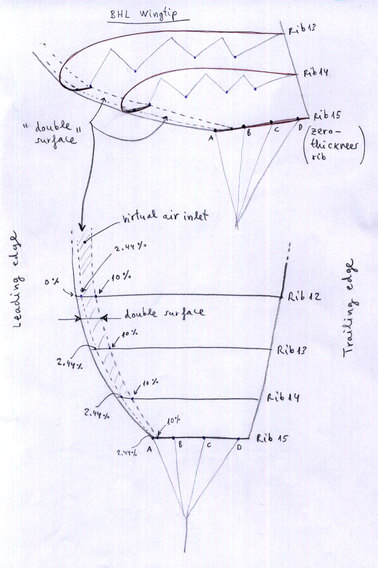 BHL Wingtip
Rib 13
Rib 14
Rib 15
(zero-
thickness
rib)
A B C D
"double
surface"
virtual air inlet
2.44%
10%
0%
Rib 12
double surface
10%
2.44%
Rib 13
10%
2.44%
Rib 14
10%
2.44%
A B C D
Rib 15
Leading edge
Trailing edge